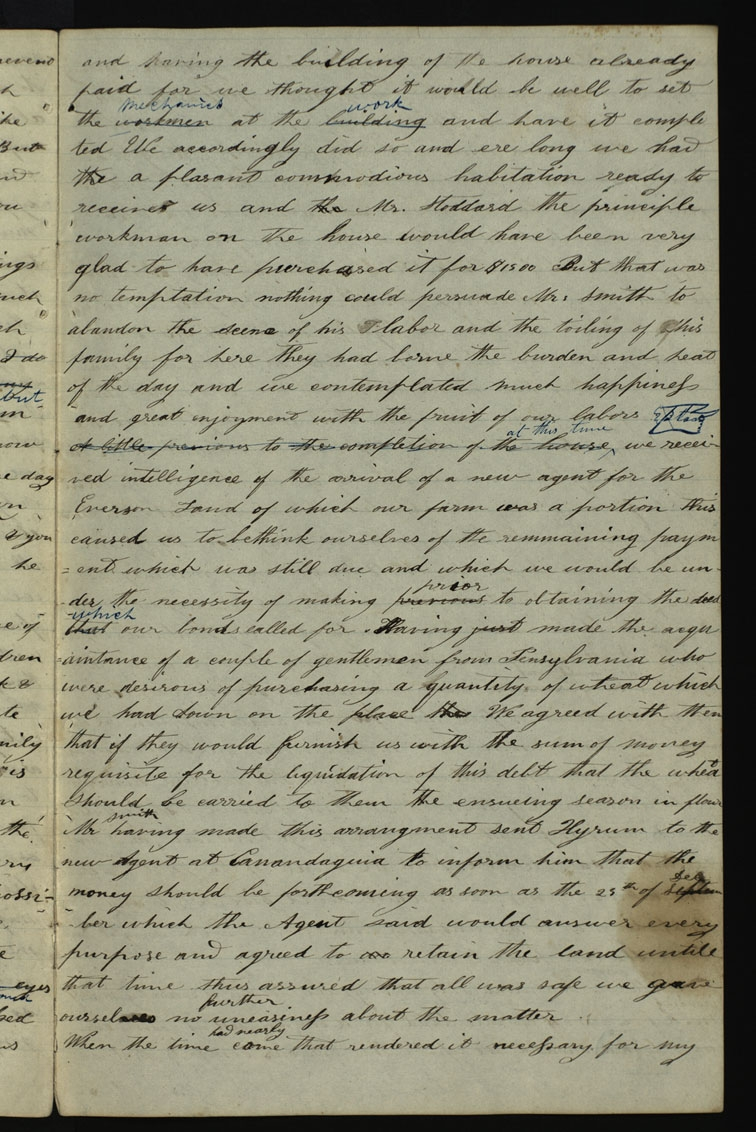 and having the building of the house already
paid for we thought it would be well to set
mechanics work
the workmen at the building and have it comple
ted We accordingly did so and ere long we had
the a plasant commodious habitation ready to
receive us and the Mr. Stoddard the principle
workman on the house would have been very
glad to have purchased it for $1500 But that was
no temptation nothing could persuade Mr. Smith to
abandon the scene of his labor and the toiling of his
family for here they had borne the burden and heat
of the day and we contemplated much happiness
and great enjoyment with the fruit of our labors
at this time
A little previous to the completion of the house, we recei
ved intelligence of the arrival of a new agent for the
Everson Land of which our farm was a portion this
caused us to bethink ourselves of the remmaining paym
=ent which was still due and which we would be un-
prior
-der the necessity of making previous to obtaining the deed
which
that our bonds called for. Having just made the acqu
aintance of a couple of gentlemen from Pensylvania who
were desirous of purchasing a quantity of wheat which
we had sown on the place the We agreed with them
that if they would furnish us with the sum of money
requisite for the liquidation of this debt that the wheat
should be carried to them the ensueing season in flour
smith
Mr having made this arrangment sent Hyrum to the
new Agent at Canandaguia to inform him that the
Dec
money should be forthcoming as soon as the 25th of Septem
-ber which the Agent said would answer every
purpose and agreed to retain the land untile
that time thus assured that all was safe we gave
further
ourselves no uneasiness about the matter
had nearly
When the time come that rendered it necessary for my